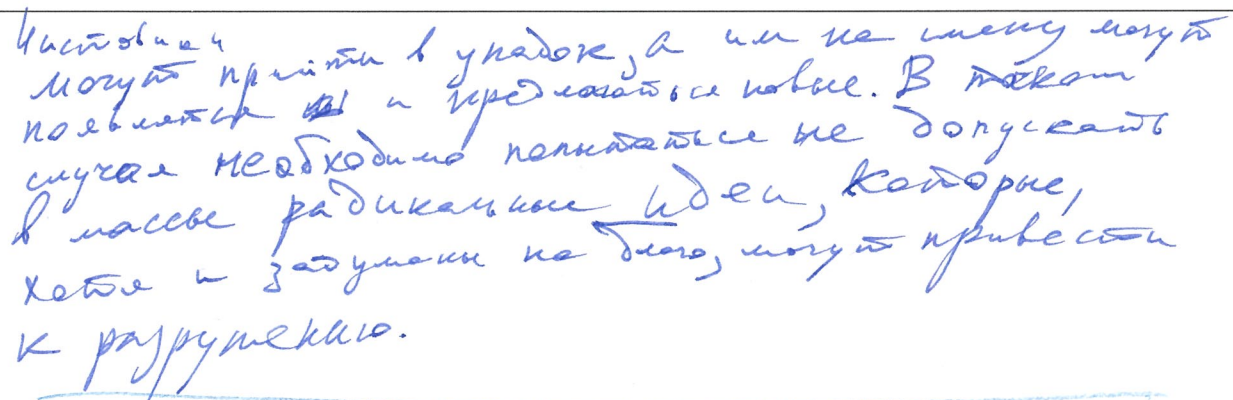 Чистовик
могут прийти в упадок, а им на смену могут
появлятся и предлагаться новые. В таком
случае необходимо попытаться не допускать
в массы радикальные идеи, которые,
хотя и задуманы на благо, могут привести
к разрушению.